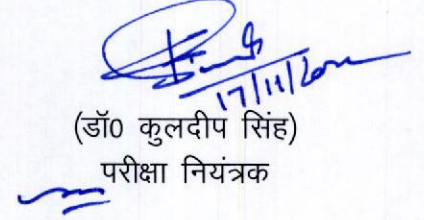 17/11/2022
(डॉ0 कुलदीप सिंह)
परीक्षा नियंत्रक